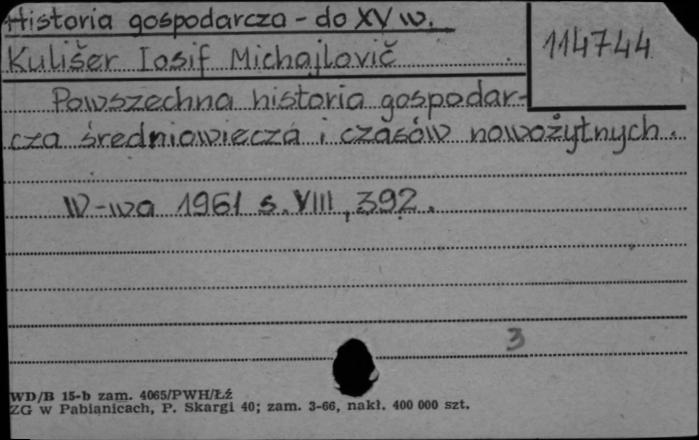 Historia gospodarcza - do XV w.
114744
Kulišer Iosif Michajlovič
Powszechna historia gospodar-
cza średniowiecza i czasów nowożytnych.
W-wa 1961 s. VIII, 392.
3
WD/B 15-b zam. 4065/PWH/Łź
ZG w Pabianicach, P. Skargi 40; zam. 3-66, nakł. 400 000 szt.